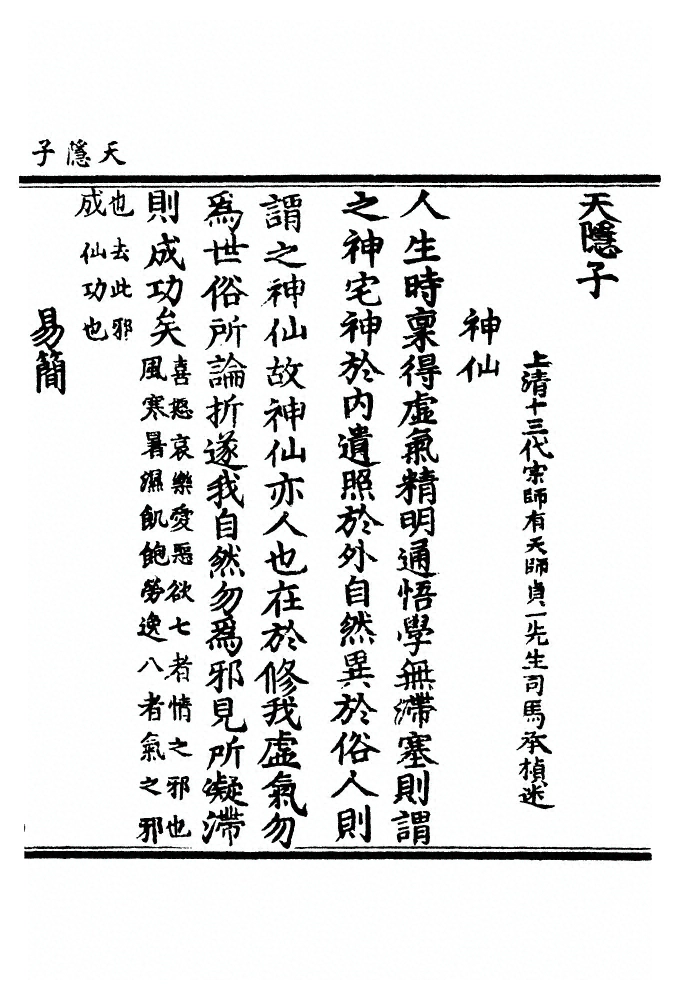 天隱子
天隱子
上清十三代宗師有天師貞一先生司馬承楨述
神仙
人生時稟得虛氣精明通悟學無滯塞則謂
之神宅神於內遺照於外自然異於俗人則
謂之神仙故神仙亦人也在於修我虛氣勿
爲世俗所論折遂我自然勿爲邪見所凝滯
則成功矣
喜怒哀樂愛惡欲七者情之邪也
風寒暑濕飢飽勞逸八者氣之邪
也去此邪
成仙功也
易簡